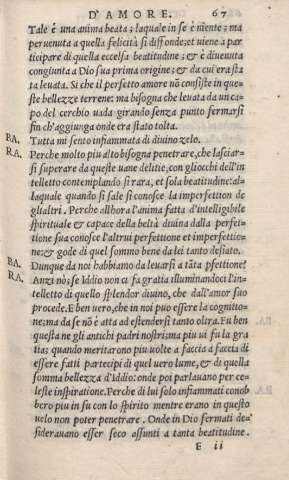 D'AMORE. 67
Tale è una anima beata; laquale in se è niente; ma
peruenuta a quella felicità si diffonde; et uiene a par
ticipare di quella eccelsa beatitudine; & è diuenuta
congiunta a Dio sua prima origine; & da cui era sta
ta leuata. Si che il perfetto amore nō consiste in que-
ste bellezze terrene: ma bisogna che leuata da un ca-
po del cerchio uada girando senza punto fermarsi
fin ch'aggiunga onde era stato tolta.
BA. Tutta mi sento infiammata di diuino zelo.
RA. Perche molto piu alto bisogna penetrare, che lasciar-
si superare da queste uane delitie, con gliocchi dell'in
telletto contemplando sì rara, et sola beatitudine: al-
laquale quando si sale si conosce la imperfettion de
glialtri. Perche allhora l'anima fatta d'intelligibile
spirituale & capace della beltà diuina dalla perfet-
tione sua conosce l'altrui perfettione et imperfettio-
ne; & gode di quel sommo bene da lei tanto desiato.
BA. Dunque da noi habbiamo da leuarsi a tāta pfettione?
RA. Anzi nò; se Iddio non ci fa gratia illuminandoci l'in-
telletto di quello splendor diuino, che dall'amor suo
procede. E ben uero, che in noi può essere la cognitto-
ne; ma da se nō è atta ad estendersi tanto oltra. Fu ben
questa ne gli antichi padri nostri; ma piu ui fu la gra
tia; quando meritarono piu uolte a faccia a faccia di
essere fatti partecipi di quel uero lume, & di quella
somma bellezza d'Iddio: onde poi parlauano per ce-
leste inspiratione. Perche di lui solo infiammati conob
bero piu in su con lo spirito mentre erano in questo
uelo non poter penetrare. Onde in Dio fermati de-
siderauano esser seco assunti a tanta beatitudine.
E ii